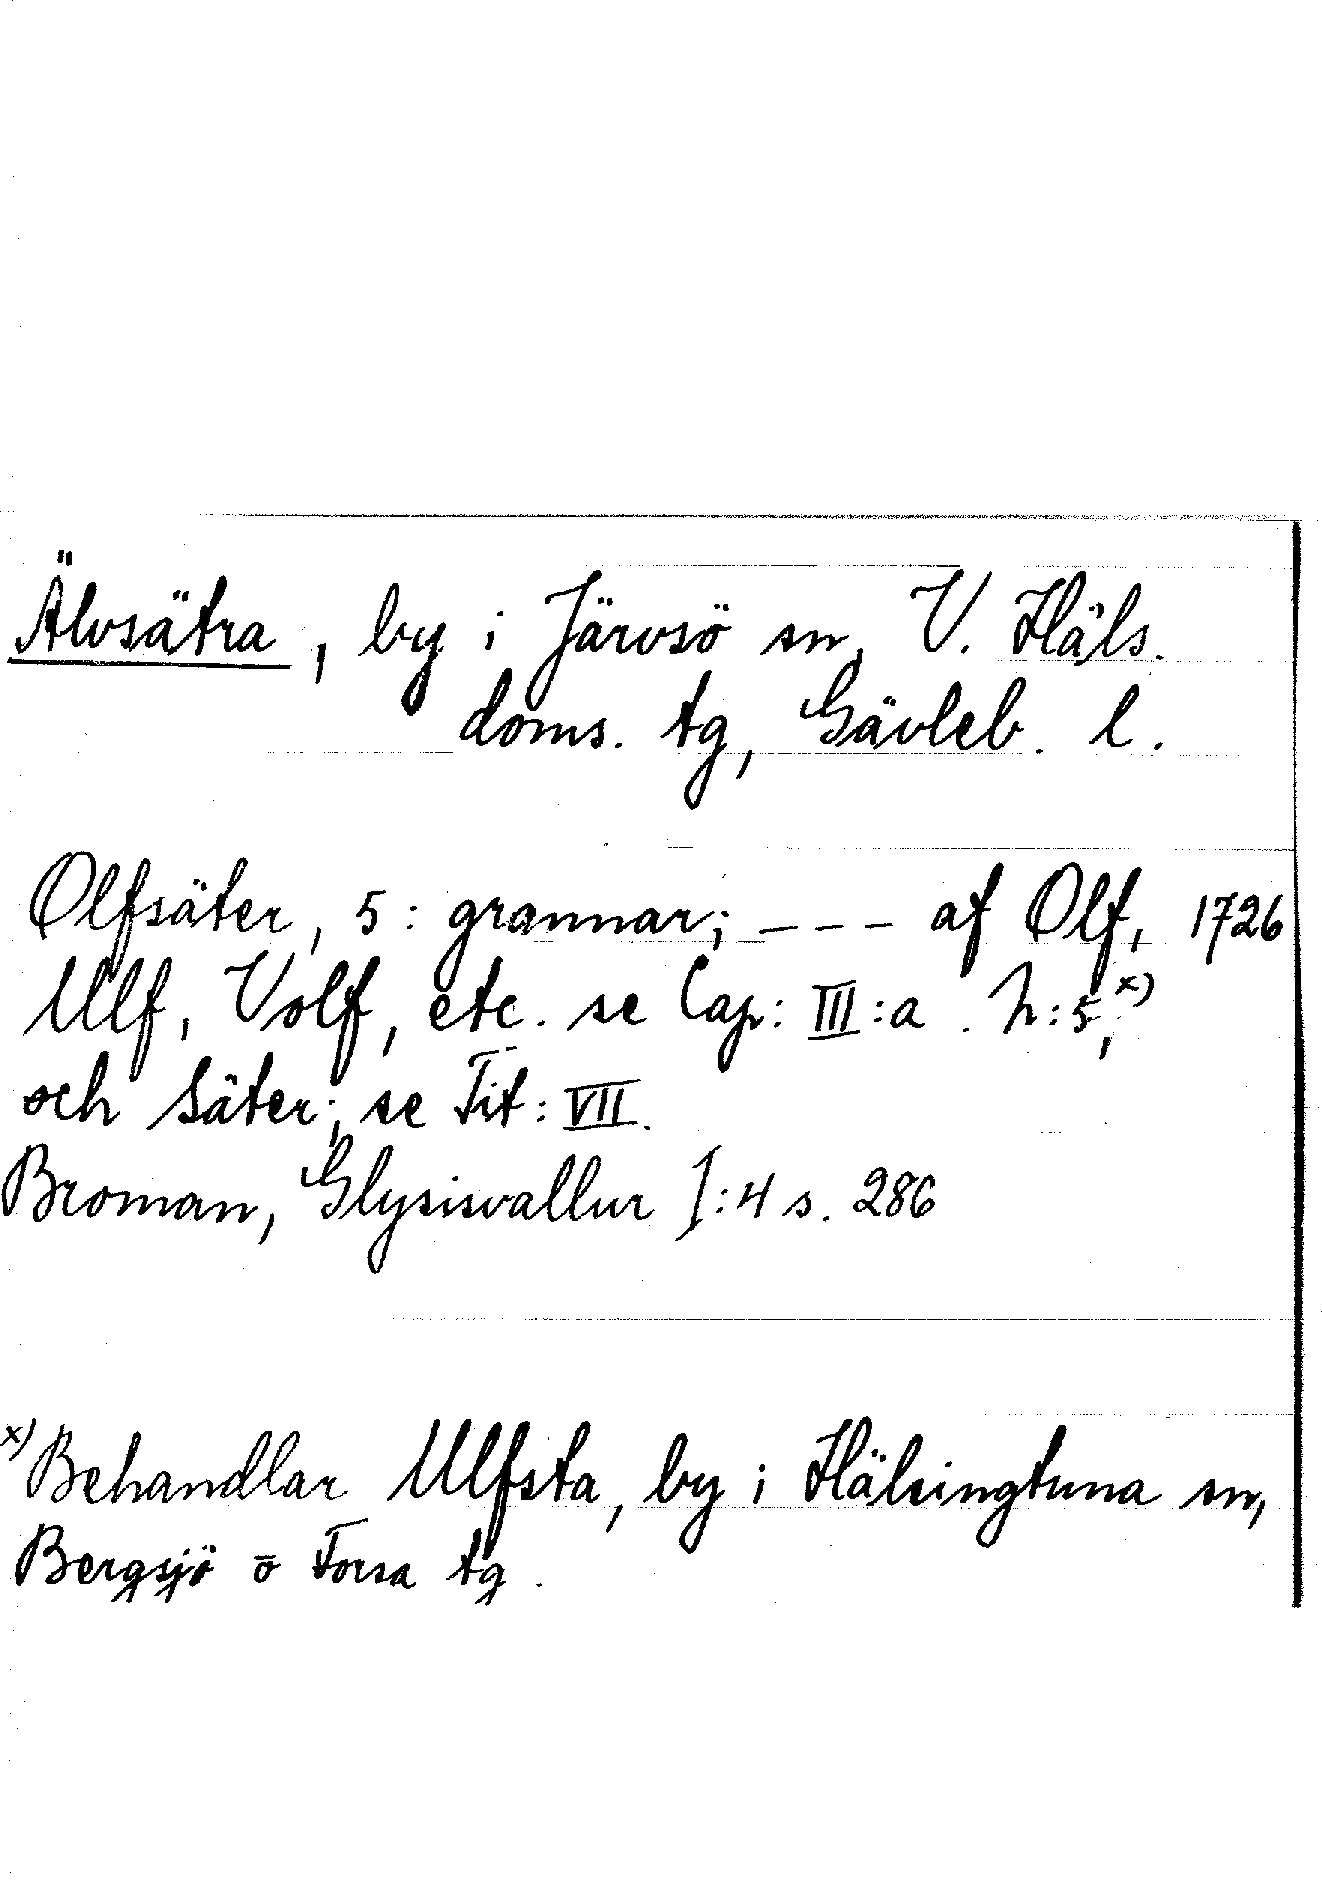 Älvsätra, by i Järvsö sn, V. Häls.
doms. tg, Gävleb. l.
Olfsäter, 5: grannar; --- af Olf, 1726
Ulf, Volf, etc. se Cap: III:a. h:5,x)
och Säter; se Tit: VII.
Broman, Glysisvallur I:4 s. 286
x) Behandlar Ulfsta, by i Hälsingtuna sn,
Bergsjö o Forsa tg.